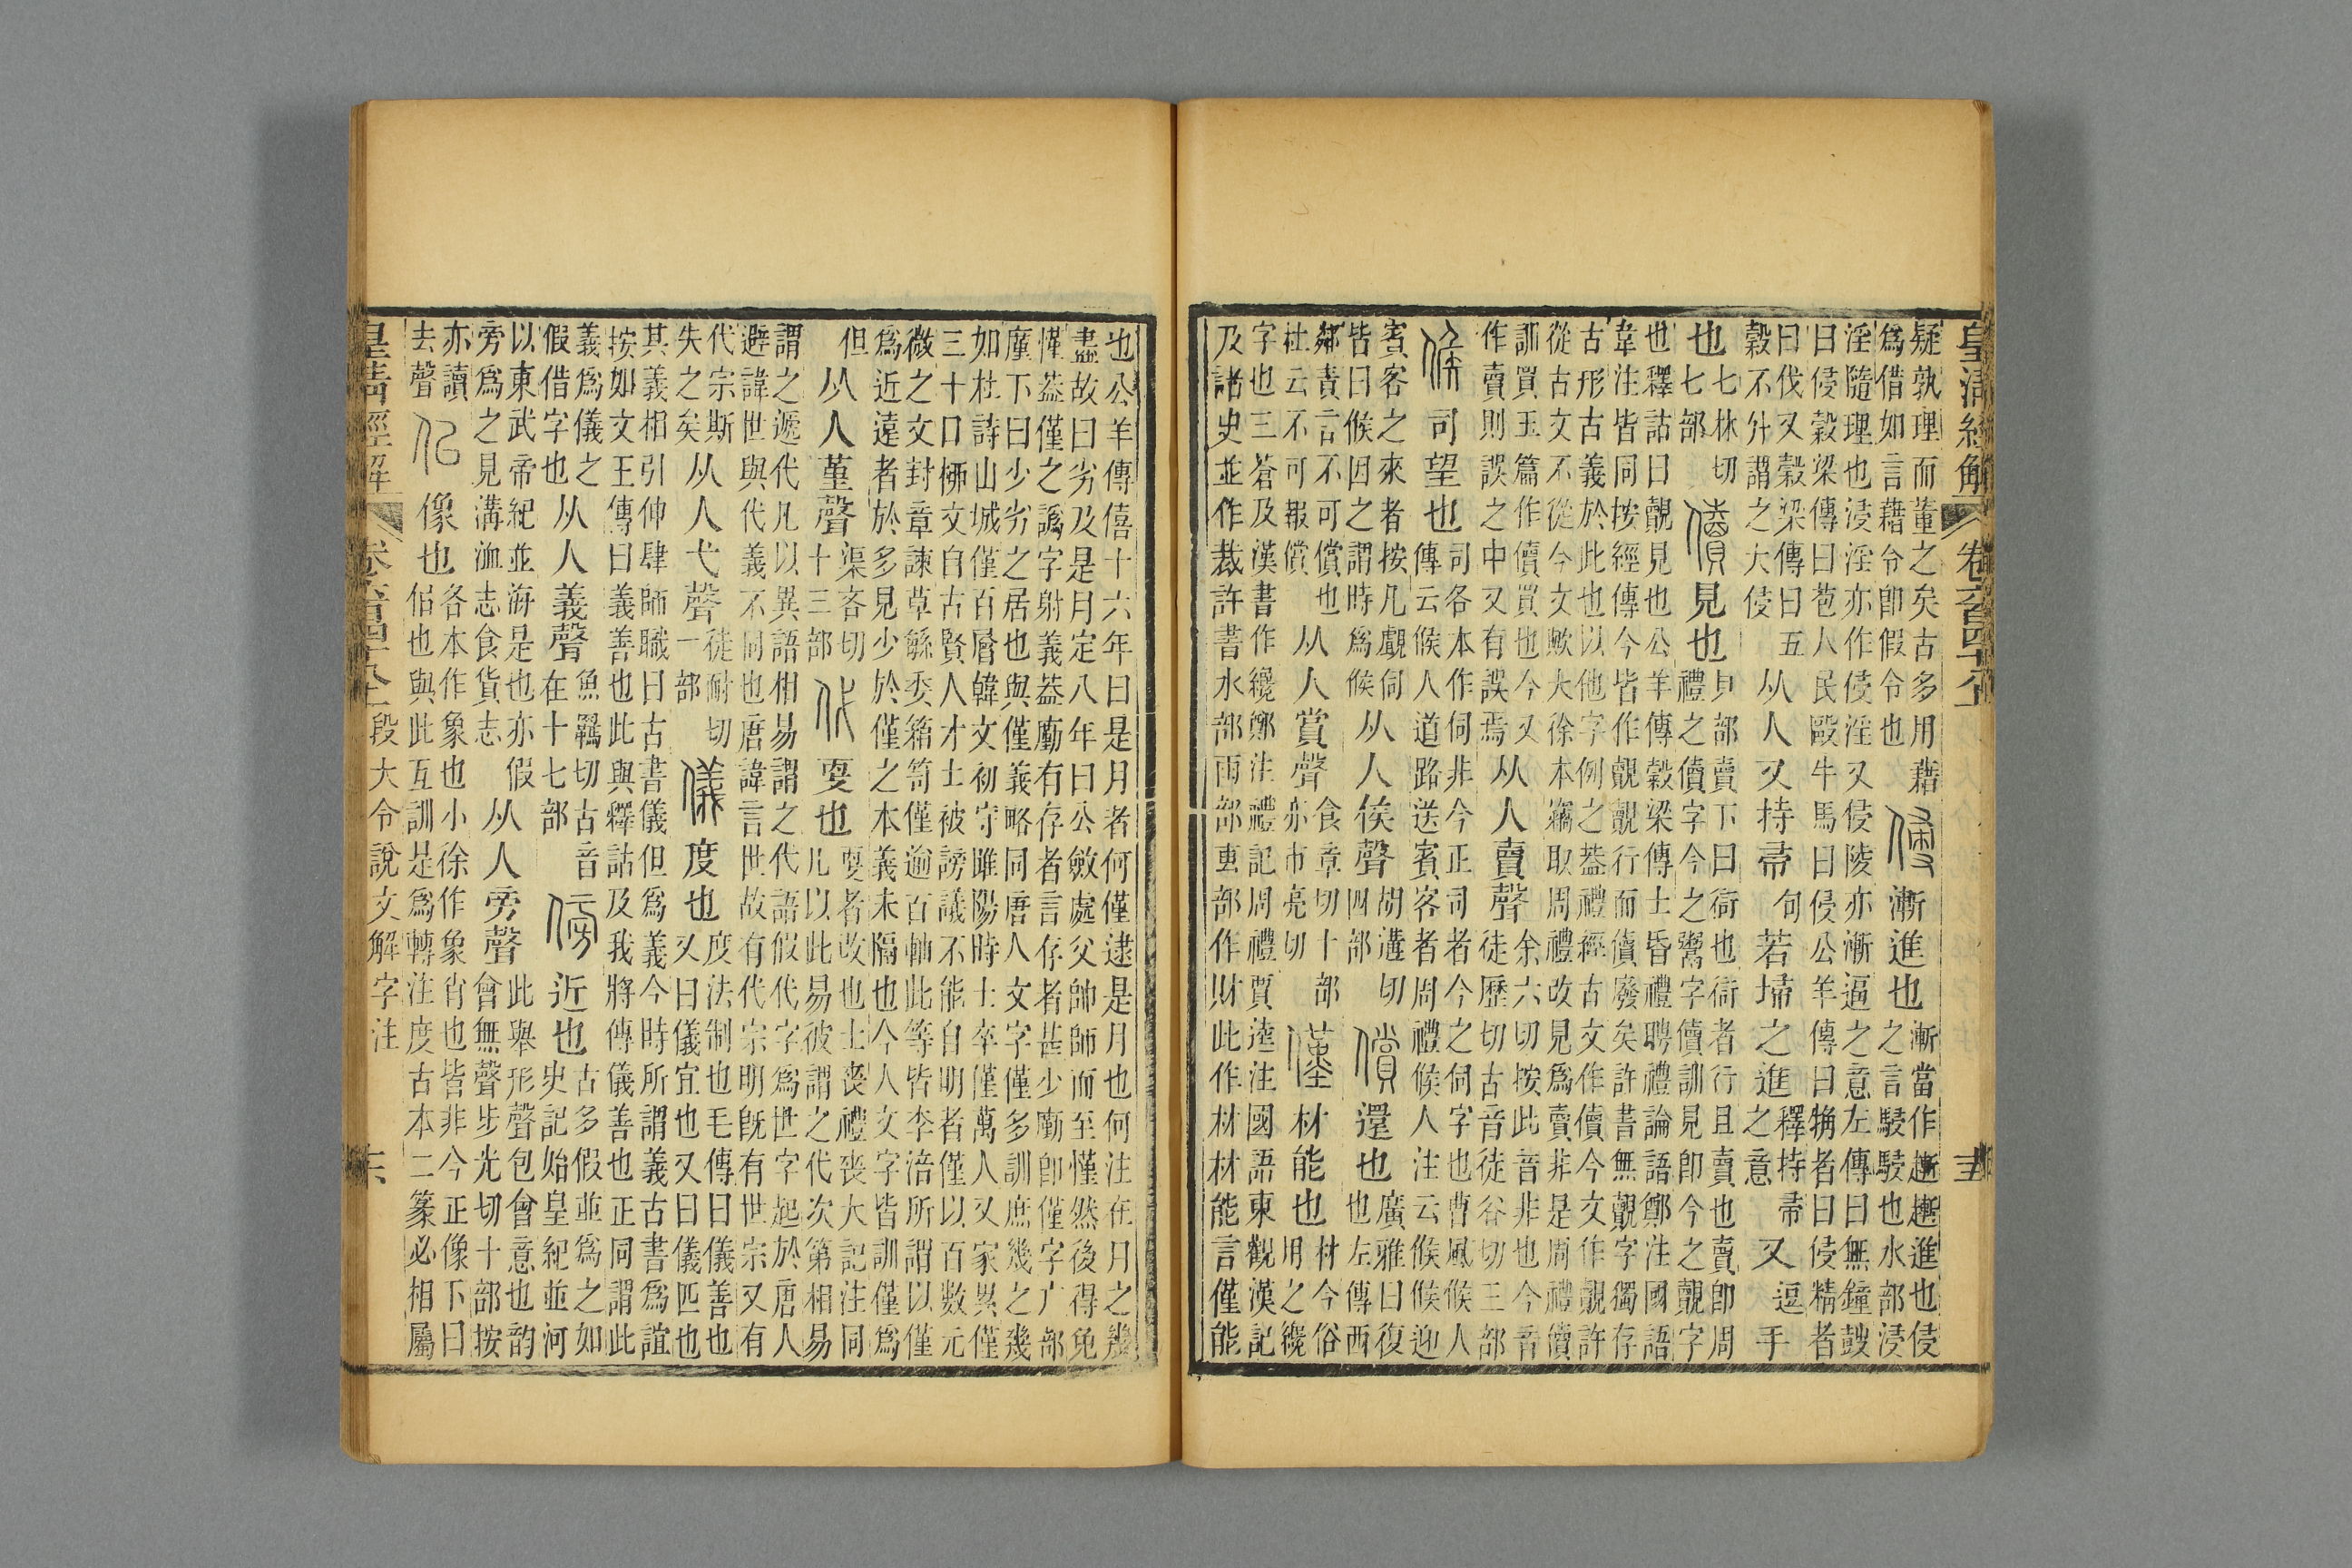 皇清經解
卷六百四十八上
疑孰理而董之矣古多用藉
爲借如言藉令卽假令也
侵
漸進也
漸當作進也侵
之言駸駸也水部浸
淫隨理也浸淫亦作侵淫又侵陵亦漸逼之意左傳曰無鐘鼓
曰侵穀梁傳曰苞人民毆牛馬曰侵公羊傳曰觕者曰侵精者
曰伐又穀梁傳曰五
穀不升謂之大侵
从人又持帚
句
若埽之進
釋持帚
之意
又
逗
手
也
七林切
七部
儥
見也
貝部賣下曰衒也衒者行且賣也賣卽周
禮之儥字今之鬻字儥訓見卽今之覿字
也釋詁曰覿見也公羊傳穀梁傳士昏禮聘禮論語鄭注國語
韋注皆同按經傳今皆作覿覿行而儥廢矣許書無覿字獨存
古形古義於此也以他字例之葢禮經古文作儥今文作覿許
從古文不從今文歟大徐本竊取周禮改見爲賣非是周禮儥
訓買玉篇作儥買也今又
作賣則誤之中又有誤焉
从人賣聲
余六切按此音非也今音
徒歷切古音徒谷切三部
候
司望也
司各本作伺非今正司者今之伺字也曹風候人
傳云候人道路送賓客者周禮候人注云候候迎
賓客之來者按凡覰伺
皆曰候因之謂時爲候
从人矦聲
胡遘切
四部
償
還也
廣雅曰復
也左傳西
鄰責言不可償也
杜云不可報償
从人賞聲
食章切十部
亦市亮切
僅
材能也
材今俗
用之纔
字也三蒼及漢書作纔鄭注禮記周禮賈逵注國語東觀漢記
及諸史並作裁許書水部雨部䖵部作財此作材材能言僅能
也公羊傳僖十六年曰是月者何僅逮是月也何注在月之幾
盡故曰劣及是月定八年曰公斂處父帥師而至慬然後得免
慬葢僅之譌字射義葢𠪱有存者言存者甚少𠪱卽僅字广部
廑下曰少劣之居也與僅義略同唐人文字僅多訓庶幾之幾
如杜詩山城僅百層韓文初守睢陽時士卒僅萬人又家累僅
三十口栁文自古賢人才士被謗議不能自明者僅以百數元
微之文封章諫草緐委箱笥僅逾百軸此等皆李涪所謂以僅
爲近遠者於多見少於僅之本義未隔也今人文字皆訓僅爲
但
从人堇聲
渠吝切
十三部
代
㪅也
㪅者改也士喪禮喪大記注同
凡以此易彼謂之代次第相易
謂之遞代凡以異語相易謂之代語假代字爲世字起於唐人
避諱世與代義不同也唐諱言世故有代宗明旣有世宗又有
代宗斯
失之矣
从人弋聲
徒耐切
一部
儀
度也
度法制也毛傳曰儀善也
又曰儀宜也又曰儀匹也
其義相引伸肆師職曰古書儀但爲義今時所謂義古書爲誼
按如文王傳曰義善也此與釋詁及我將傳儀善也正同謂此
義爲儀之
假借字也
从人義聲
魚羈切古音
在十七部
傍
近也
古多假並爲之如
史記始皇紀並河
以東武帝紀並海是也亦假
旁爲之見溝洫志食貨志
从人旁聲
此舉形聲包會意也韵
會無聲步光切十部按
亦讀
去聲
佀
像也
各本作象也小徐作象肖也皆非今正像下曰
佀也與此互訓是爲轉注度古本二篆必相屬
皇清經解
卷六百四十八上
段大令說文解字注